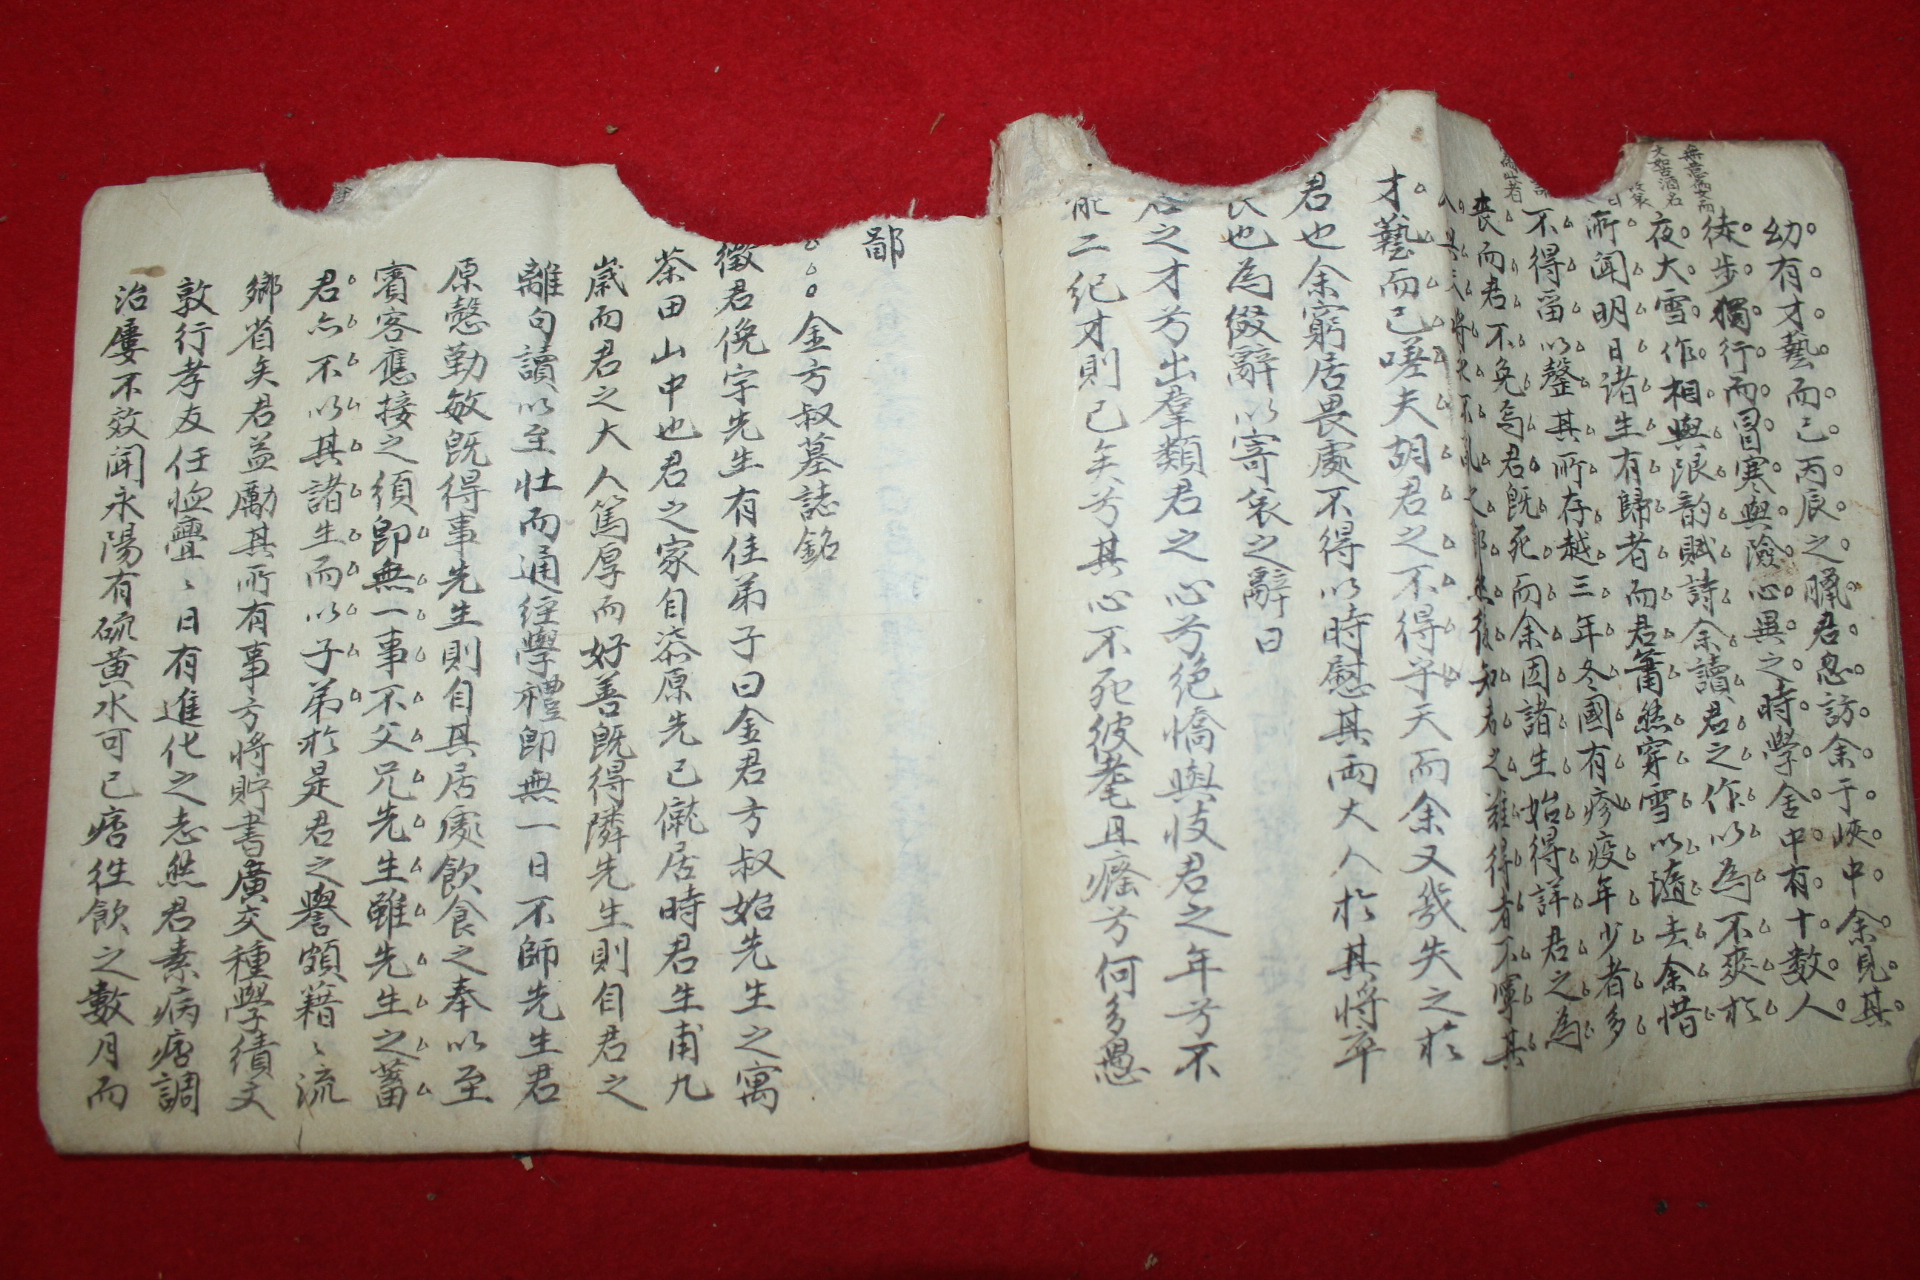 幼有才藝而已丙辰之臘君忽訪余于峽中余見其
徒步獨行而冒寒與險心異之時學舍中有十數人
夜大雪作相與限韵賦詩余讀君之作以為不爽於
所聞明日諸生有歸者而君簫然穿雪以隨去余惜
不得留以罄其所存越三年冬國有疹疫年少者多
喪而君不免焉君既死而余因諸生始得詳君之為
知者之難得有不單其
才藝而已嗟夫胡君之不得乎天而余又幾失之於
君也余窮居畏處不得以時慰其兩大人於其將卒
也為綴辭以寄哀之辭曰
君之才兮出羣類君之心兮絶憍與忮君之年兮不
能二紀才則已矣兮其心不死彼耄且癃兮何多愚
鄙
金方叔墓誌銘
徵君俛宇先生有佳弟子曰金君方叔始先生之寓
茶田山中也君之家自漆原先已僦居時君生甫九
歲而君之大人篤厚而好善既得隣先生則自君之
離句讀以至壯而通經學禮卽無一日不師先生君
原慤勤敏既得事先生則自其居處飲食之奉以至
賓客應接之須卽無一事不父兄先生雖先生之蓄
君亦不以其諸生而以子弟於是君之譽頗藉〻流
鄉省矣君益勵其所有事方將貯書廣交種學績文
敦行孝友任恤亹〻日有進化之志然君素病痞調
治屢不效聞永陽有硫黄水可已痞徃飲之數月而